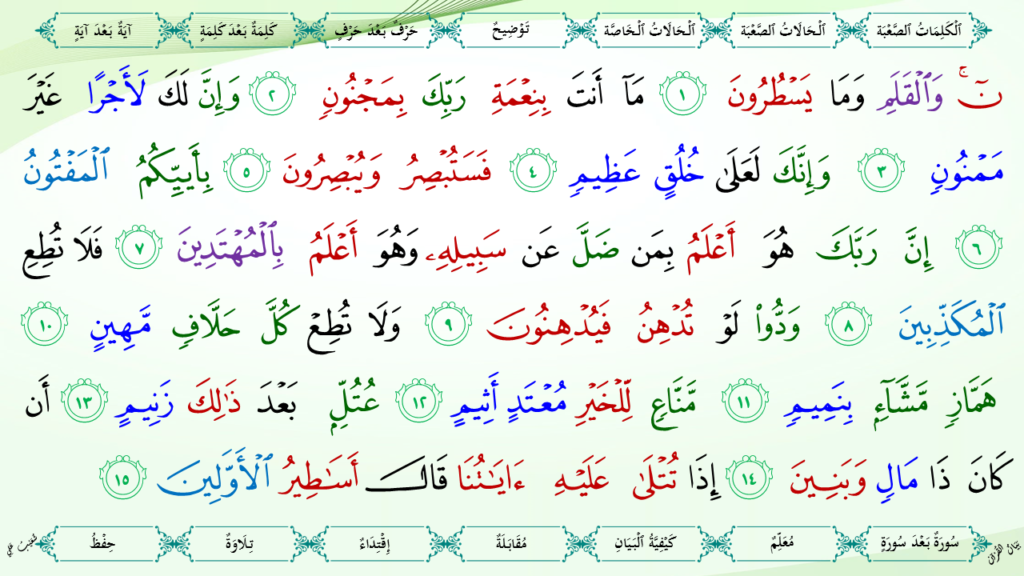 اَلْكَلِمَاتُ الصَّعْبَة اَلْحَالَاتُ الصَّعْبَة اَلْحَالَاتُ الْخَاصَّة تَوْضِيحٌ حَرْفٌ بَعْدَ حَرْفٍ كَلِمَةٌ بَعْدَ كَلِمَةٍ آيَةٌ بَعْدَ آيَةٍ
نٓ ۚ وَٱلْقَلَمِ وَمَا يَسْطُرُونَ ١ مَآ أَنتَ بِنِعْمَةِ رَبِّكَ بِمَجْنُونٍ ٢ وَإِنَّ لَكَ لَأَجْرًا غَيْرَ
مَمْنُونٍ ٣ وَإِنَّكَ لَعَلَىٰ خُلُقٍ عَظِيمٍ ٤ فَسَتُبْصِرُ وَيُبْصِرُونَ ٥ بِأَييِّكُمُ ٱلْمَفْتُونُ
٦ إِنَّ رَبَّكَ هُوَ أَعْلَمُ بِمَن ضَلَّ عَن سَبِيلِهِۦ وَهُوَ أَعْلَمُ بِٱلْمُهْتَدِينَ ٧ فَلَا تُطِعِ
ٱلْمُكَذِّبِينَ ٨ وَدُّوا۟ لَوْ تُدْهِنُ فَيُدْهِنُونَ ٩ وَلَا تُطِعْ كُلَّ حَلَّافٍ مَّهِينٍ ١٠
هَمَّازٍ مَّشَّآءٍۭ بِنَمِيمٍ ١١ مَّنَّاعٍ لِّلْخَيْرِ مُعْتَدٍ أَثِيمٍ ١٢ عُتُلٍّۭ بَعْدَ ذَٰلِكَ زَنِيمٍ ١٣ أَن
كَانَ ذَا مَالٍ وَبَنِينَ ١٤ إِذَا تُتْلَىٰ عَلَيْهِ ءَايَـٰتُنَا قَالَ أَسَـٰطِيرُ ٱلْأَوَّلِينَ ١٥
سُورَةٌ بَعْدَ سُورَةٍ مُعَلِّمٌ كَيْفِيَّةُ الْبَيَانِ مُقَابَلَةٌ إِقْتِدَاءٌ تِلَاوَةٌ حِفْظٌ